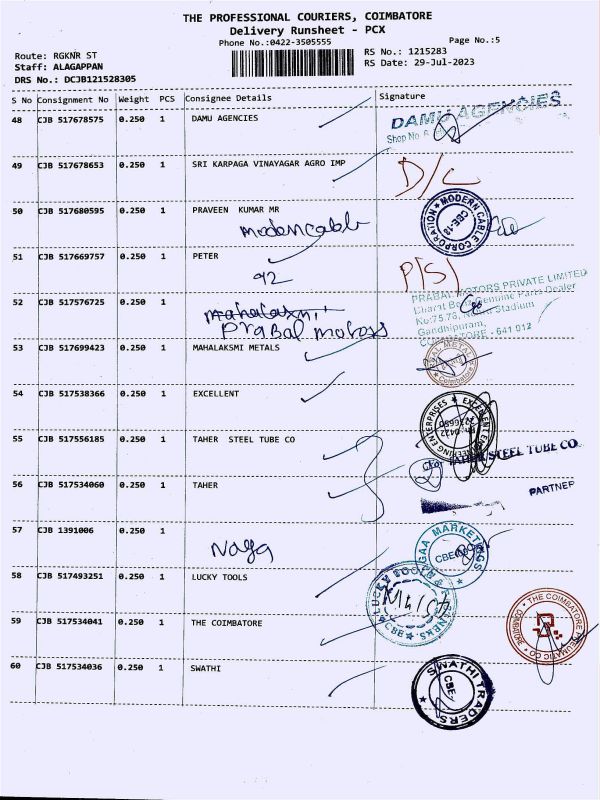 THE PROFESSIONAL COURIERS, COIMBATORE
Delivery Runsheet - PCX
Phone No.:0422-3505555
Page No.:5
Route: RGKNR ST
RS No.: 1215283
Staff: ALAGAPPAN
RS Date: 29-Jul-2023
DRS No.: DCJB121528305
S No Consignment No Weight PCS Consignee Details Signature
48 CJB 517678575 0.250 1 DAMU AGENCIES
DAMU AGENCIES
Shop No.
49 CJB 517678653 0.250 1 SRI KARPAGA VINAYAGAR AGRO IMP
D/C
50 CJB 517680595 0.250 1 PRAVEEN KUMAR MR
moderncable
MODERN CABLE CORPORATION CBE-18
51 CJB 517669757 0.250 1 PETER
92
P/S)
52 CJB 517576725 0.250 1
mahalaxmi
Prabal motors
PRABAL MOTORS PRIVATE LIMITED
Bharat Benz Genuine Parts Dealer
No:75,76, Nehru Stadium
Gandhipuram,
COIMBATORE - 641 012
53 CJB 517699423 0.250 1 MAHALAKSMI METALS
METAL
Coimbatore
54 CJB 517538366 0.250 1 EXCELLENT
EXCELLENT ENGINEERING ENTERPRISES
55 CJB 517556185 0.250 1 TAHER STEEL TUBE CO
For TAHER STEEL TUBE CO.
56 CJB 517534060 0.250 1 TAHER
PARTNER
57 CJB 1391006 0.250 1
Naga
NAGAA MARKETINGS
CBE
58 CJB 517493251 0.250 1 LUCKY TOOLS
LUCKY TOOLS
CBE
59 CJB 517534041 0.250 1 THE COIMBATORE
THE COIMBATORE PNEUMATIC CO
COIMBATORE
60 CJB 517534036 0.250 1 SWATHI
SWATHI TRADERS
CBE